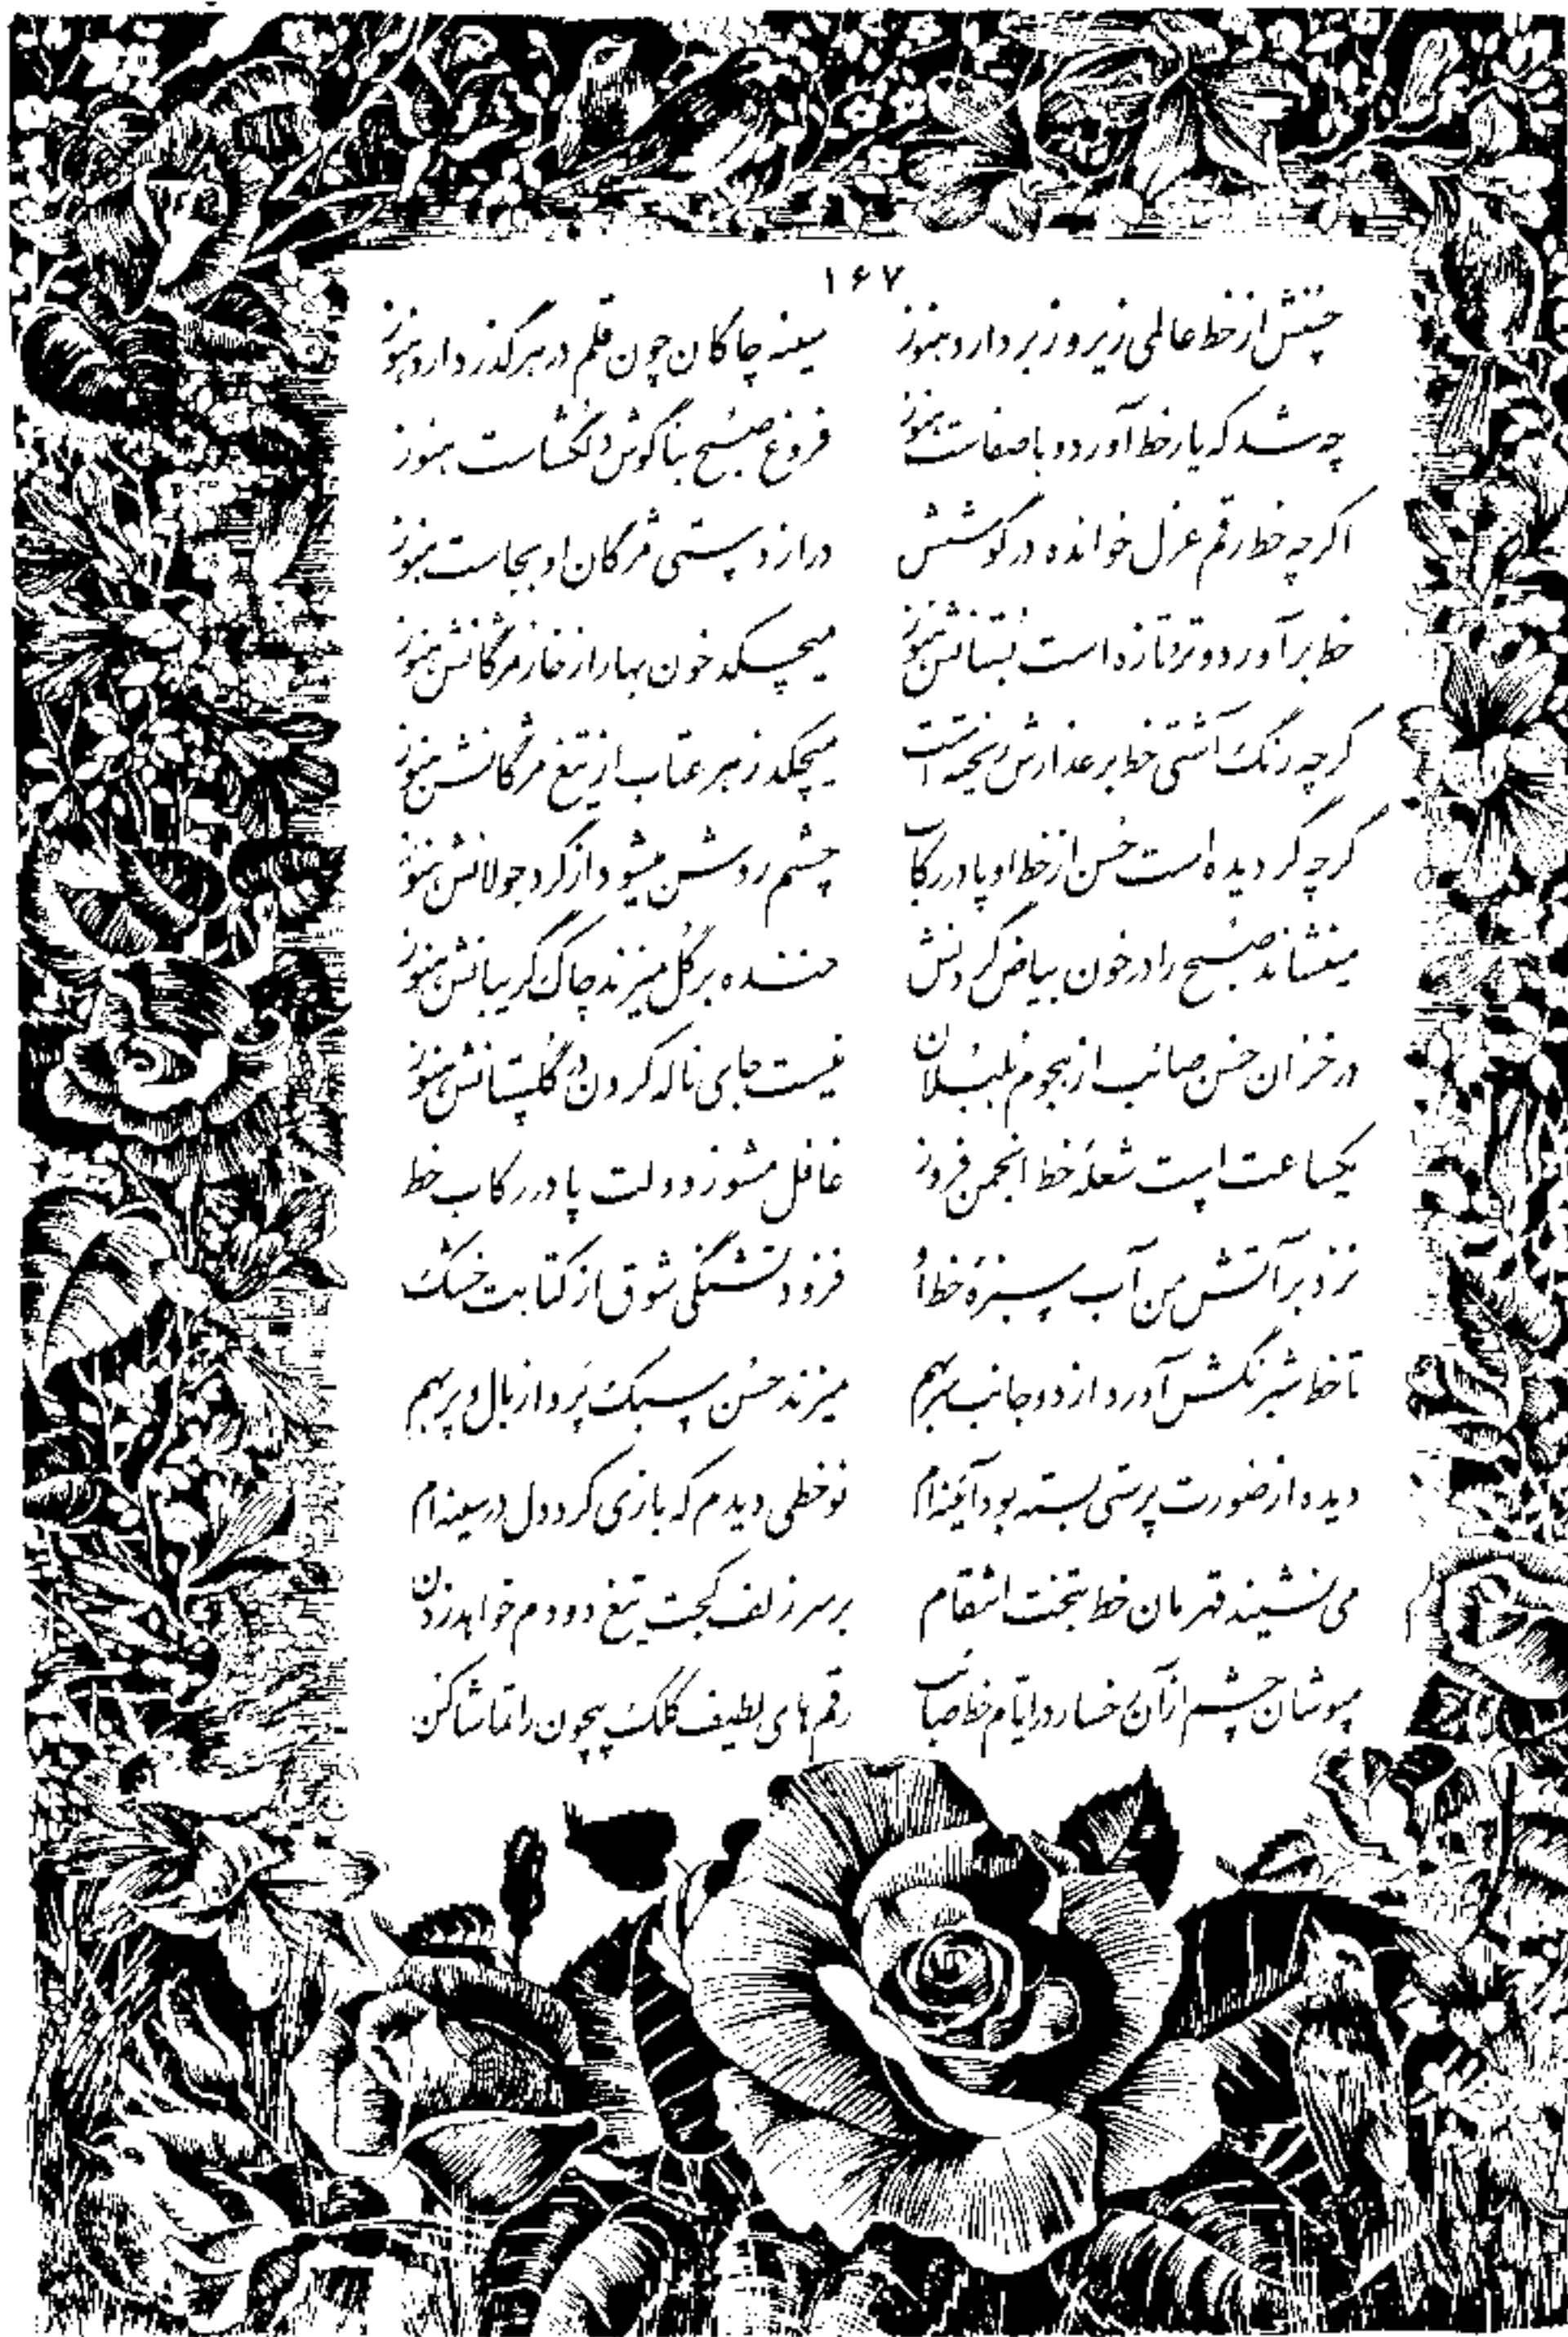 ۱۶۷
حسنش از خط عالمی زیر و زبر دارد هنوز سینه چاکان چون قلم در هر گذر دارد هنوز
چه شد که یار خط آورد و باصفاست هنوز فروغ صبح بناگوش دلگشاست هنوز
اگرچه خط رقم عزل خوانده در گوشش دراز دستی مژگان او بجاست هنوز
خط برآورد و تر و تازه است بستانش هنوز میچکد خون بهار از خار مژگانش هنوز
گرچه رنگ آشتی خط بر عذارش ریخته است میچکد زهر عتاب از تیغ مژگانش هنوز
گرچه گردیده است حسن از خط او پا در رکاب چشم روشن میشود از گرد جولانش هنوز
مینشاند صبح را در خون بیاض گردنش خنده بر گل میزند چاک گریبانش هنوز
در خزان حسن صائب از هجوم بلبلان نیست جای ناله کردن در گلستانش هنوز
یکساعت است شعلهٔ خط انجمن فروز غافل مشو ز دولت پا در رکاب خط
نزد بر آتش من آب سبزهٔ خط او فزود تشنگی شوق از کتابت خشک
تا خط شبرنگش آورد از دو جانب سر بهم میزند حسن سبک پرواز بال و پر بهم
دیده از صورت پرستی بسته بود آئینه‌ام نوخطی دیدم که بازی کرد دل در سینه‌ام
می نشیند قهرمان خط بتخت انتقام بر سر زلف کجت تیغ دودم خواهد زدن
مپوشان چشم از آن رخسار در ایام خط صائب رقم های لطیف کلک بیچون را تماشا کن